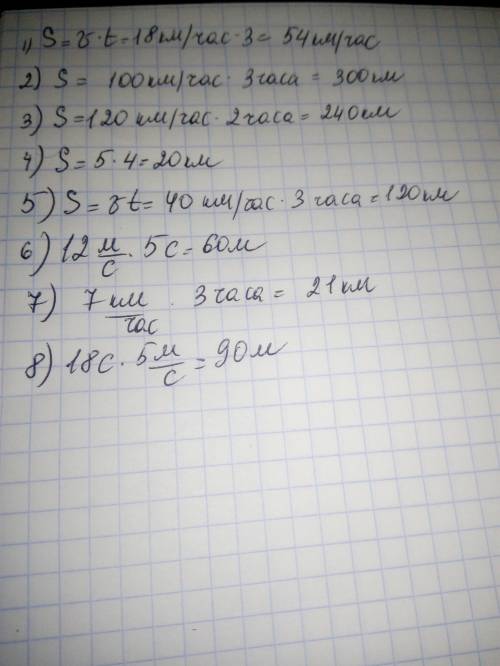 1) S = v · t = 18 км/час · 3 = 54 км/час
2) S = 100 км/час · 3 часа = 300 км
3) S = 120 км/час · 2 часа = 240 км
4) S = 5 · 4 = 20 км
5) S = vt = 40 км/час · 3 часа = 120 км
6) 12 м/с · 5с = 60 м
7) 7 км/час · 3 часа = 21 км
8) 18с · 5 м/с = 90 м